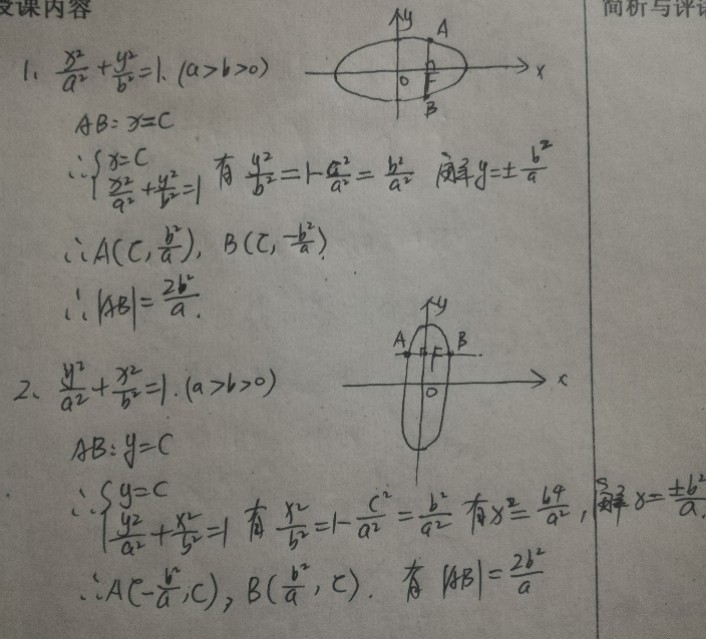 授课内容
简析与评
1、x²/a² + y²/b² = 1. (a>b>0)
y A O F x B
AB: x=c
∴{x=c
x²/a² + y²/b² = 1 有 y²/b² = 1-c²/a² = b²/a² 解 y=± b²/a
∴A(c, b²/a), B(c, -b²/a).
∴|AB| = 2b²/a.
y A F B O x
2、y²/a² + x²/b² = 1. (a>b>0)
AB: y=c
∴{y=c
y²/a² + x²/b² = 1 有 x²/b² = 1- c²/a² = b²/a² 有 x² = b⁴/a², 解 x= ±b²/a.
∴A(-b²/a, c), B(b²/a, c). 有 |AB| = 2b²/a